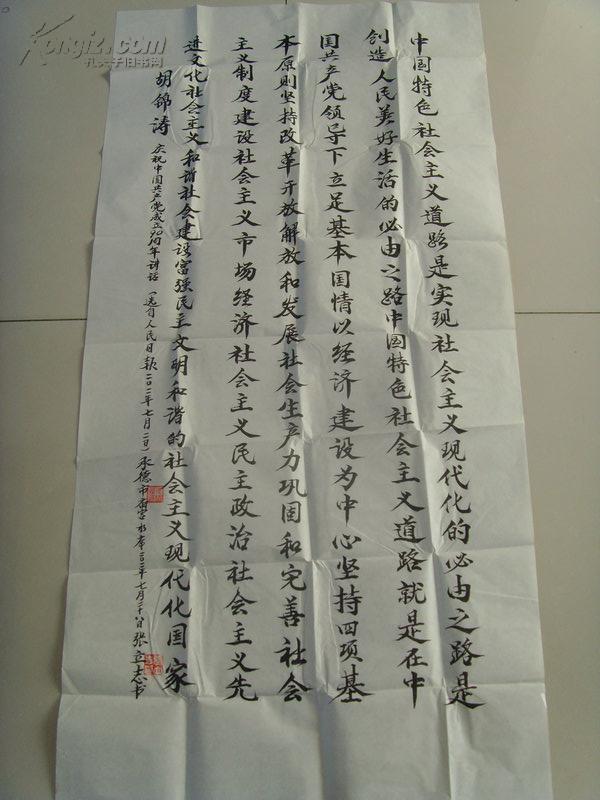 中国特色社会主义道路是实现社会主义现代化的必由之路是
创造人民美好生活的必由之路中国特色社会主义道路就是在中
国共产党领导下立足基本国情以经济建设为中心坚持四项基
本原则坚持改革开放解放和发展社会生产力巩固和完善社会
主义制度建设社会主义市场经济社会主义民主政治社会主义先
进文化社会主义和谐社会建设富强民主文明和谐的社会主义现代化国家
胡锦涛 庆祝中国共产党成立九十年讲话(选自人民日报二〇一一年七月二日)承德市 七月二十八日张立志书
Kongfz.com
孔夫子旧书网